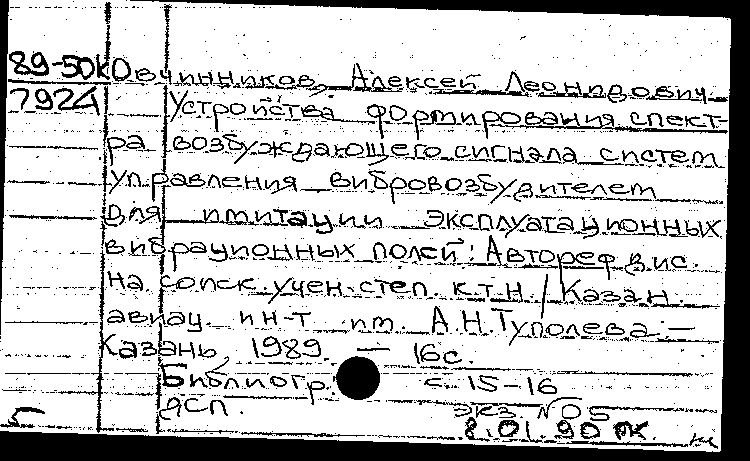 89-50К Овчинников, Алексей Леонидович.
7924 Устройства формирования спект-
ра возбуждающего сигнала систем
управления вибровозбудителем
для имитации эксплуатационных
вибрационных полей: Автореф. дис.
на соиск. учен. степ. к.т.н. / Казан.
авиац. ин-т им. А.Н.Туполева. —
Казань, 1989. — 16с.
Библиогр.: с. 15-16
ДСП. экз. № 05
8.01.90